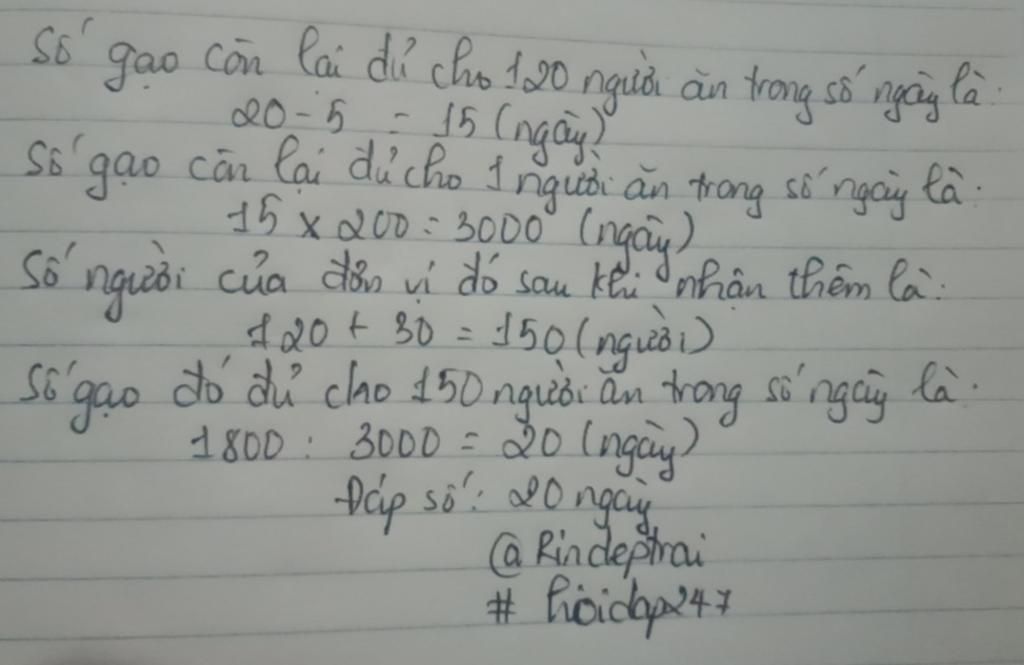 Số gạo còn lại đủ cho 120 người ăn trong số ngày là:
20 - 5 = 15 (ngày)
Số gạo còn lại đủ cho 1 người ăn trong số ngày là:
15 x 200 = 3000 (ngày)
Số người của đơn vị đó sau khi nhận thêm là:
120 + 30 = 150 (người)
Số gạo đó đủ cho 150 người ăn trong số ngày là:
1800 : 3000 = 20 (ngày)
Đáp số: 20 ngày
@Rindeptrai
# hoidap247